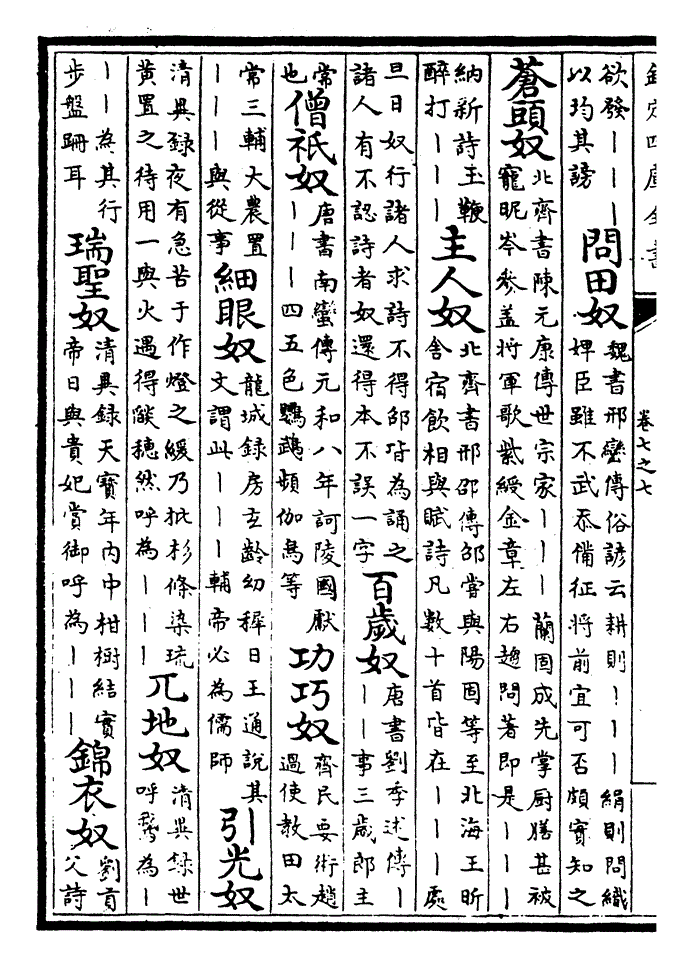 欽定四庫全書 卷七之七
欲發｜｜｜
以均其謗
問田奴
魏書邢巒傳俗諺云耕則｜｜｜絹則問織
婢臣雖不武忝備征將前宜可否頗實知之
蒼頭奴
北齊書陳元康傳世宗家｜｜｜蘭固成先掌厨膳甚被
寵昵岑參蓋將軍歌紫綬金章左右趨問著即是｜｜｜
納新詩玉鞭
醉打｜｜｜
主人奴
北齊書邢邵傳邵嘗與陽固等至北海王昕
舍宿飲相與賦詩凡數十首皆在｜｜｜處
旦日奴行諸人求詩不得邵皆為誦之
諸人有不認詩者奴還得本不誤一字
百歲奴
唐書劉季述傳｜
｜｜事三歲郎主
常
也
僧祇奴
唐書南蠻傳元和八年訶陵國獻
｜｜｜四五色鸚鵡頻伽鳥等
功巧奴
齊民要術趙
過使教田太
常三輔大農置
｜｜｜與從事
細眼奴
龍城錄房玄齡幼穉日王通說其
文謂此｜｜｜輔帝必為儒師
引光奴
清異録夜有急苦于作燈之緩乃批杉條染琉
黃置之待用一與火遇得燄穗然呼為｜｜｜
兀地奴
清異録世
呼鵞為｜
｜｜為其行
步盤跚耳
瑞聖奴
清異録天寶年內中柑樹結實
帝日與貴妃賞御呼為｜｜｜
錦衣奴
劉貢
父詩